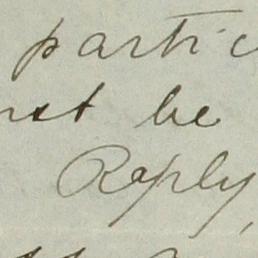 partic
not be
Reply,